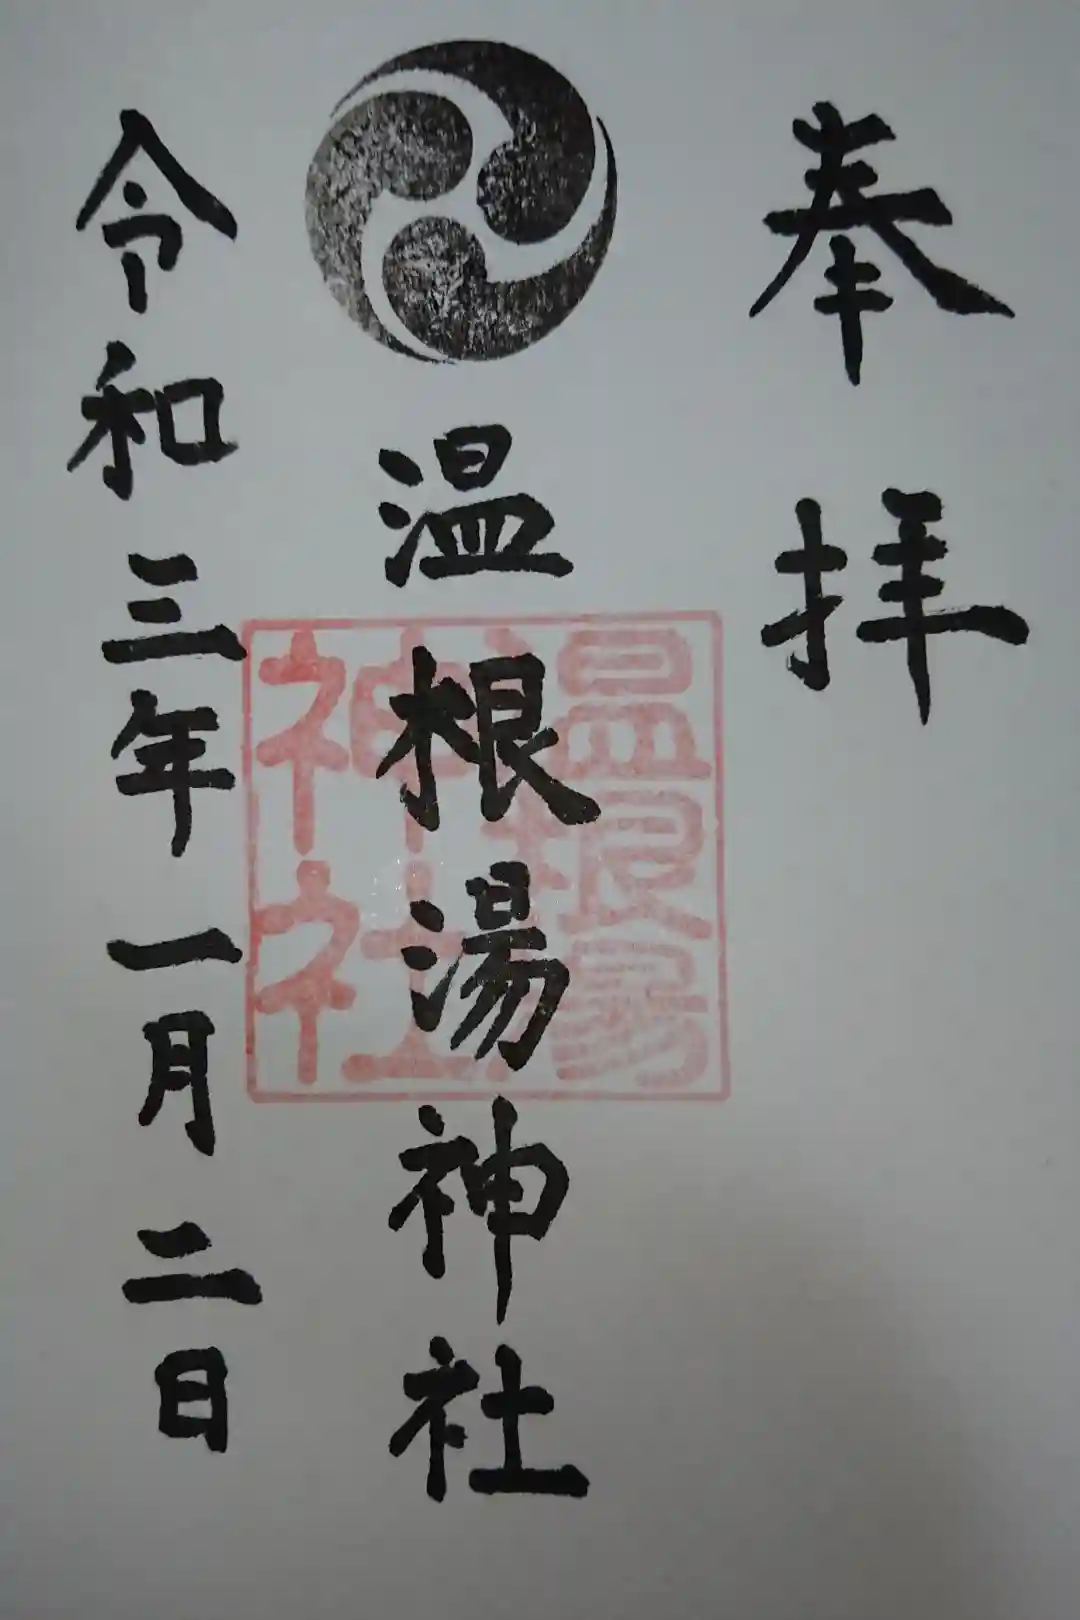 奉拝
温根湯神社
令和三年一月二日
温根湯
神社